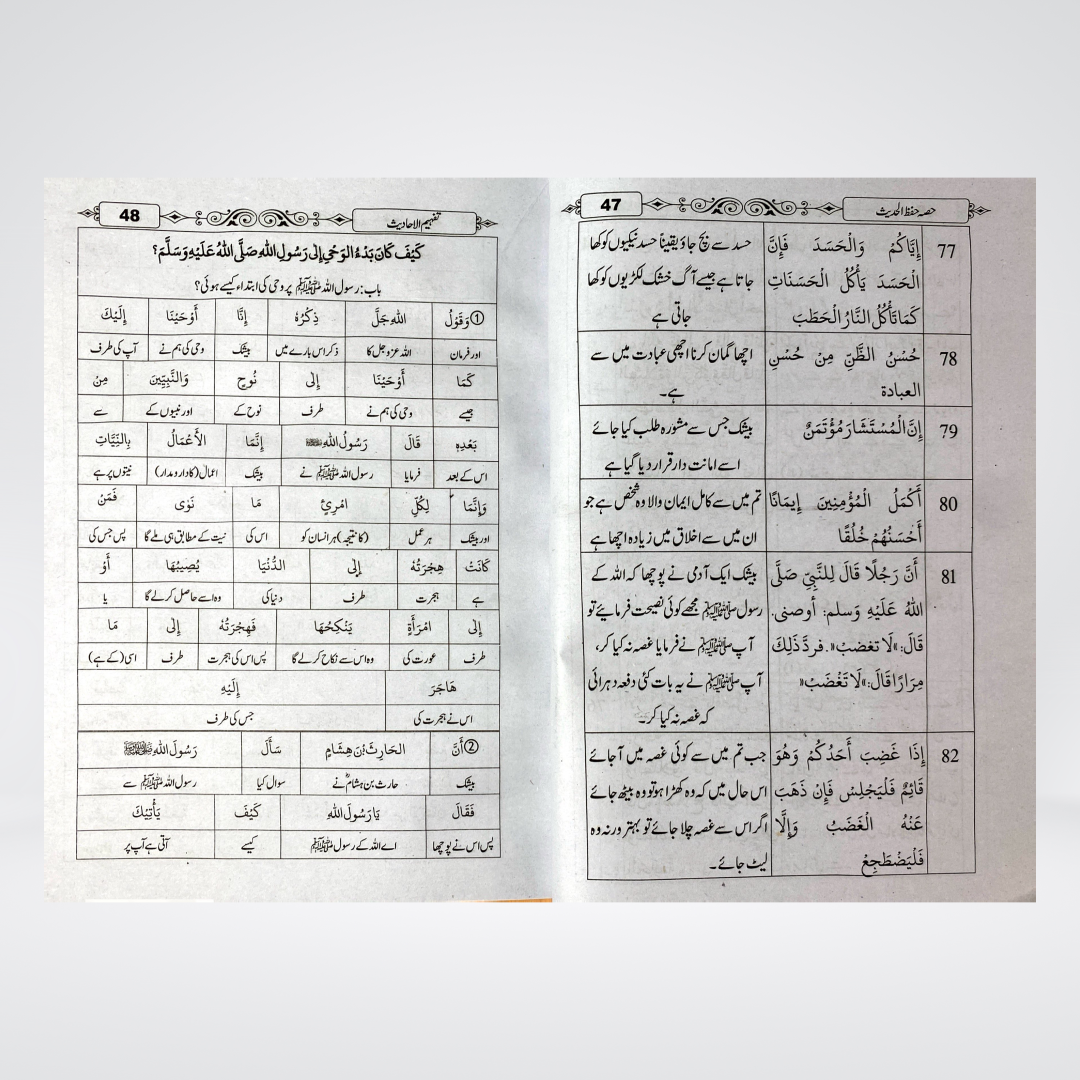 حصہ حفظ الحدیث
47
77
إِيَّاكُمْ وَالْحَسَدَ فَإِنَّ
الْحَسَدَ يَأْكُلُ الْحَسَنَاتِ
كَمَا تَأْكُلُ النَّارُ الْحَطَبَ
حسد سے بچ جاؤ یقیناً حسد نیکیوں کو کھا
جاتا ہے جیسے آگ خشک لکڑیوں کو کھا
جاتی ہے
78
حُسْنُ الظَّنِّ مِنْ حُسْنِ
العبادة
اچھا گمان کرنا اچھی عبادت میں سے
ہے۔
79
إِنَّ الْمُسْتَشَارَ مُؤْتَمَنٌ
بیشک جس سے مشورہ طلب کیا جائے
اسے امانت دار قرار دیا گیا ہے
80
أَكْمَلُ الْمُؤْمِنِينَ إِيمَانًا
أَحْسَنُهُمْ خُلُقًا
تم میں سے کامل ایمان والا وہ شخص ہے جو
ان میں سے اخلاق میں زیادہ اچھا ہے
81
أَنَّ رَجُلًا قَالَ لِلنَّبِيِّ صَلَّى
اللهُ عَلَيْهِ وَسلم: أوصنى.
قَالَ: »لَا تغضبْ« . فردَّ ذَلِكَ
مِرَارًا قَالَ: »لَا تَغْضَبْ«
بیشک ایک آدمی نے پوچھا کہ اللہ کے
رسول ﷺ مجھے کوئی نصیحت فرمایئے تو
آپ ﷺ نے فرمایا غصہ نہ کیا کر،
آپ ﷺ نے یہ بات کئی دفعہ دہرائی
کہ غصہ نہ کیا کر۔
82
إِذَا غَضِبَ أَحَدُكُمْ وَهُوَ
قَائِمٌ فَلْيَجْلِسْ فَإِنْ ذَهَبَ
عَنْهُ الْغَضَبُ وَإِلَّا
فَلْيَضْطَجِعْ
جب تم میں سے کوئی غصہ میں آ جائے
اس حال میں کہ وہ کھڑا ہو تو وہ بیٹھ جائے
اگر اس سے غصہ چلا جائے تو بہتر ورنہ وہ
لیٹ جائے۔
تفہیم الاحادیث
48
كَيْفَ كَانَ بَدْءُ الوَحْيِ إِلَى رَسُولِ اللهِ صَلَّى اللهُ عَلَيْهِ وَسَلَّمَ؟
باب: رسول اللہ ﷺ پر وحی کی ابتداء کیسے ہوئی؟
① وَقَوْلُ اللهِ جَلَّ ذِكْرُهُ إِنَّا أَوْحَيْنَا إِلَيْكَ
اور فرمان اللہ عزوجل کا ذکر اس بارے میں بیشک وحی کی ہم نے آپ کی طرف
كَمَا أَوْحَيْنَا إِلَى نُوحٍ وَالنَّبِيِّينَ مِنْ
جیسے وحی کی ہم نے طرف نوح کے اور نبیوں کے سے
بَعْدِهِ قَالَ رَسُولُ اللهِ ﷺ إِنَّمَا الأَعْمَالُ بِالنِّيَّاتِ
اس کے بعد فرمایا رسول اللہ ﷺ نے بیشک اعمال (کا دارومدار) نیتوں پر ہے
وَإِنَّمَا لِكُلِّ امْرِئٍ مَا نَوَى فَمَنْ
اور بیشک ہر عمل (کا نتیجہ) ہر انسان کو اس کی نیت کے مطابق ہی ملے گا پس جس کی
كَانَتْ هِجْرَتُهُ إِلَى الدُّنْيَا يُصِيبُهَا أَوْ
ہے ہجرت طرف دنیا کی وہ اسے حاصل کرلے گا یا
إِلَى امْرَأَةٍ يَنْكِحُهَا فَهِجْرَتُهُ إِلَى مَا
طرف عورت کی وہ اس سے نکاح کرلے گا پس اس کی ہجرت طرف اسی (کے ہے)
هَاجَرَ إِلَيْهِ
اس نے ہجرت کی جس کی طرف
② أَنَّ الحَارِثَ بْنَ هِشَامٍ سَأَلَ رَسُولَ اللهِ ﷺ
بیشک حارث بن ہشامؓ نے سوال کیا رسول اللہ ﷺ سے
فَقَالَ يَا رَسُولَ اللهِ كَيْفَ يَأْتِيكَ
پس اس نے پوچھا اے اللہ کے رسول ﷺ کیسے آتی ہے آپ پر